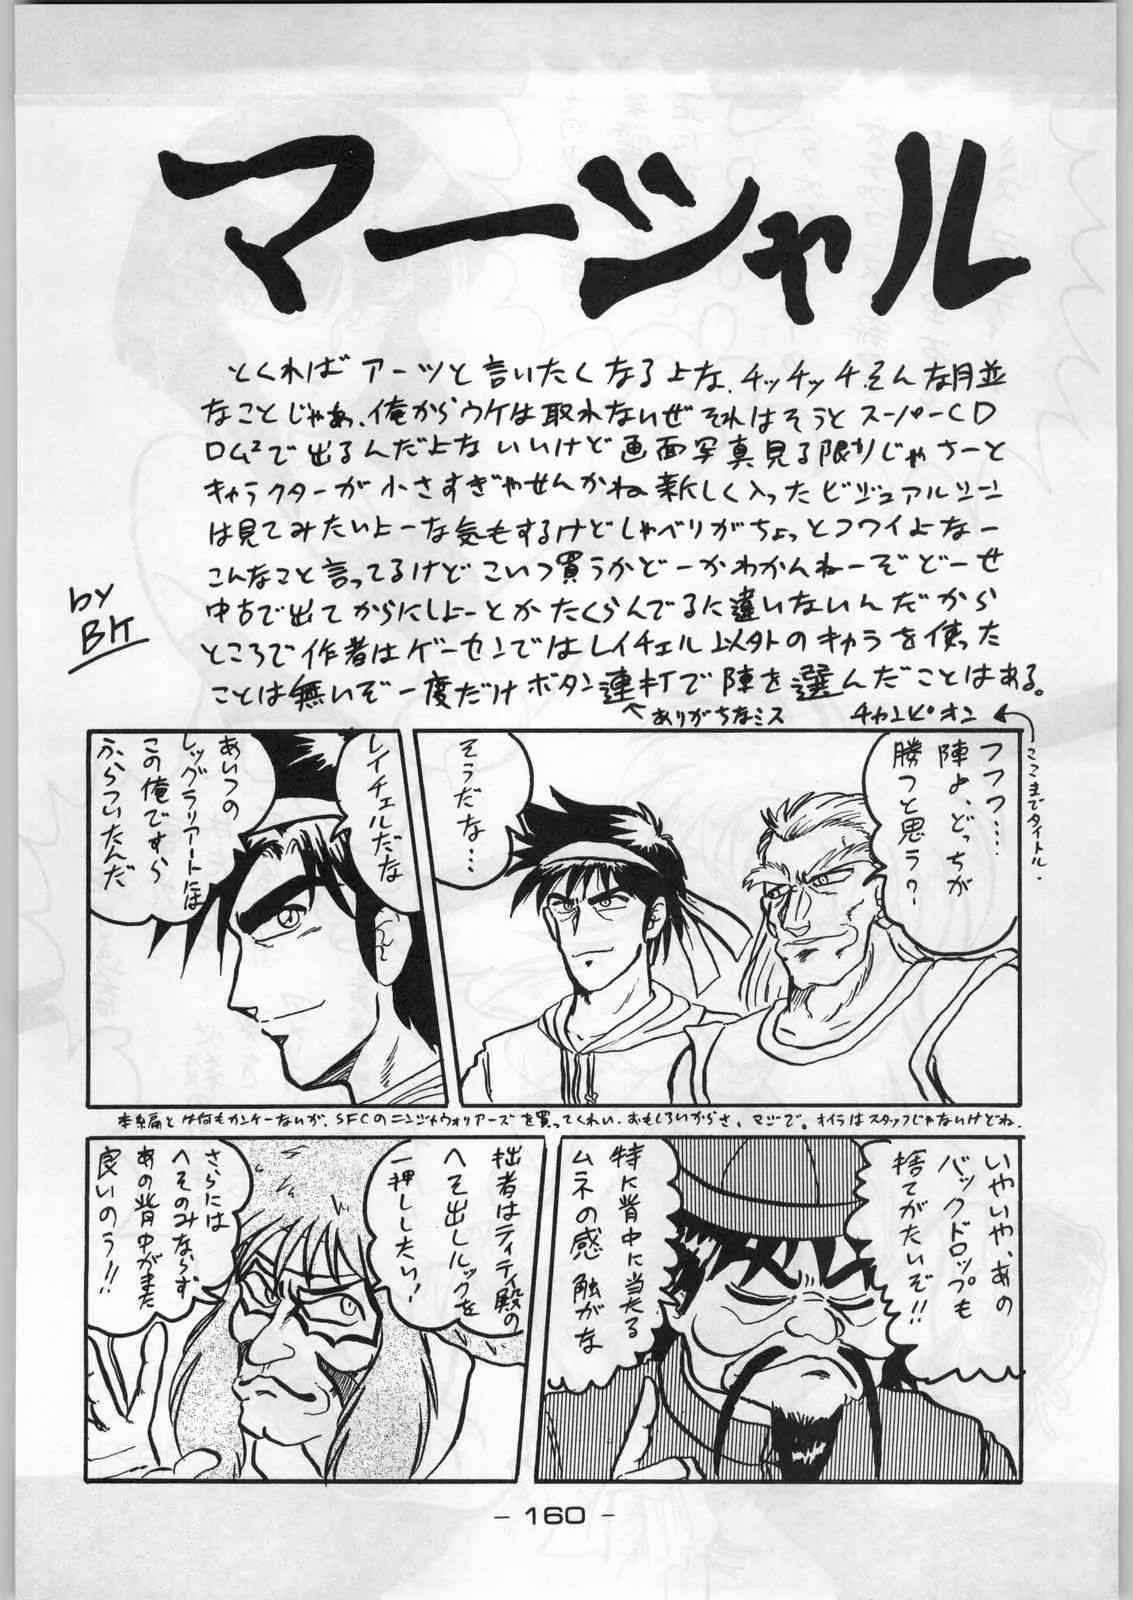 マーシャル
とくればアーツと言いたくなるよな、チッチッチ、そんな月並
なことじゃあ、俺からウケは取れないぜそれはそうとスーパーCD
ROM²で出るんだよな いいけど画面写真見る限りじゃさーと
キャラクターが小さすぎやせんかね 新しく入ったビジュアルシーン
は見てみたいよーな気もするけどしゃべりがちょっとコワイよなー
こんなこと言ってるけどこいつ買うかどーかわかんねーぞどーせ
中古で出てからにしよーとかたくらんでるに違いないんだから
ところで作者はゲーセンではレイチェル以外のキャラを使った
ことは無いぞ一度だけボタン連打で陣を選んだことはある。
by
BIT
ありがちなミス
チャンピオン
ここまでタイトル.
フフフ…
陣よ、どっちが
勝つと思う?
そうだな…
レイチェルだな
あいつの
レッグラリアートには
この俺ですら
ふらついたんだ
本編とは何もカンケーないが、SFCのニンジャウォリアーズを買ってくれい、おもしろいからさ、マジで。オイラはスタッフじゃないけどね.
いやいや、あの
バックドロップも
捨てがたいぞ!!
特に背中に当たる
ムネの感触がな
拙者はティティ殿の
へそ出しルックを
一押ししたい!
さらには
へそのみならず
あの背中がまた
良いのう!!
- 160 -